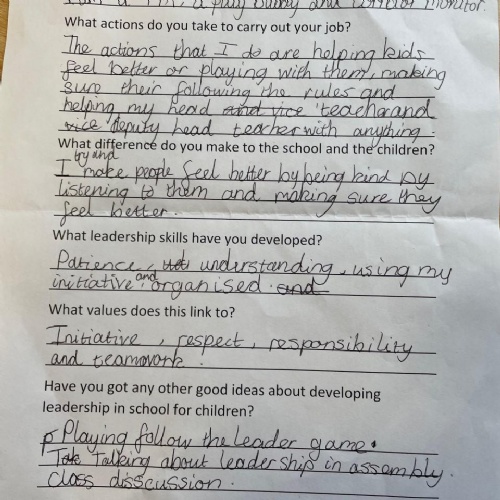 a play buddy and corridor monitor.
What actions do you take to carry out your job?
The actions that I do are helping kids
feel better or playing with them, making
sure their following the rules and
helping my head and vice teacher and
vice deputy head teacher with anything.
What difference do you make to the school and the children?
try and
I make people feel better by being kind by
listening to them and making sure they
feel better.
What leadership skills have you developed?
Patience, understanding, using my
initiative and organised. and
What values does this link to?
Initiative, respect, responsibility
and teamwork.
Have you got any other good ideas about developing
leadership in school for children?
Playing follow the leader game.
Talking about leadership in assembly.
class disscussion.